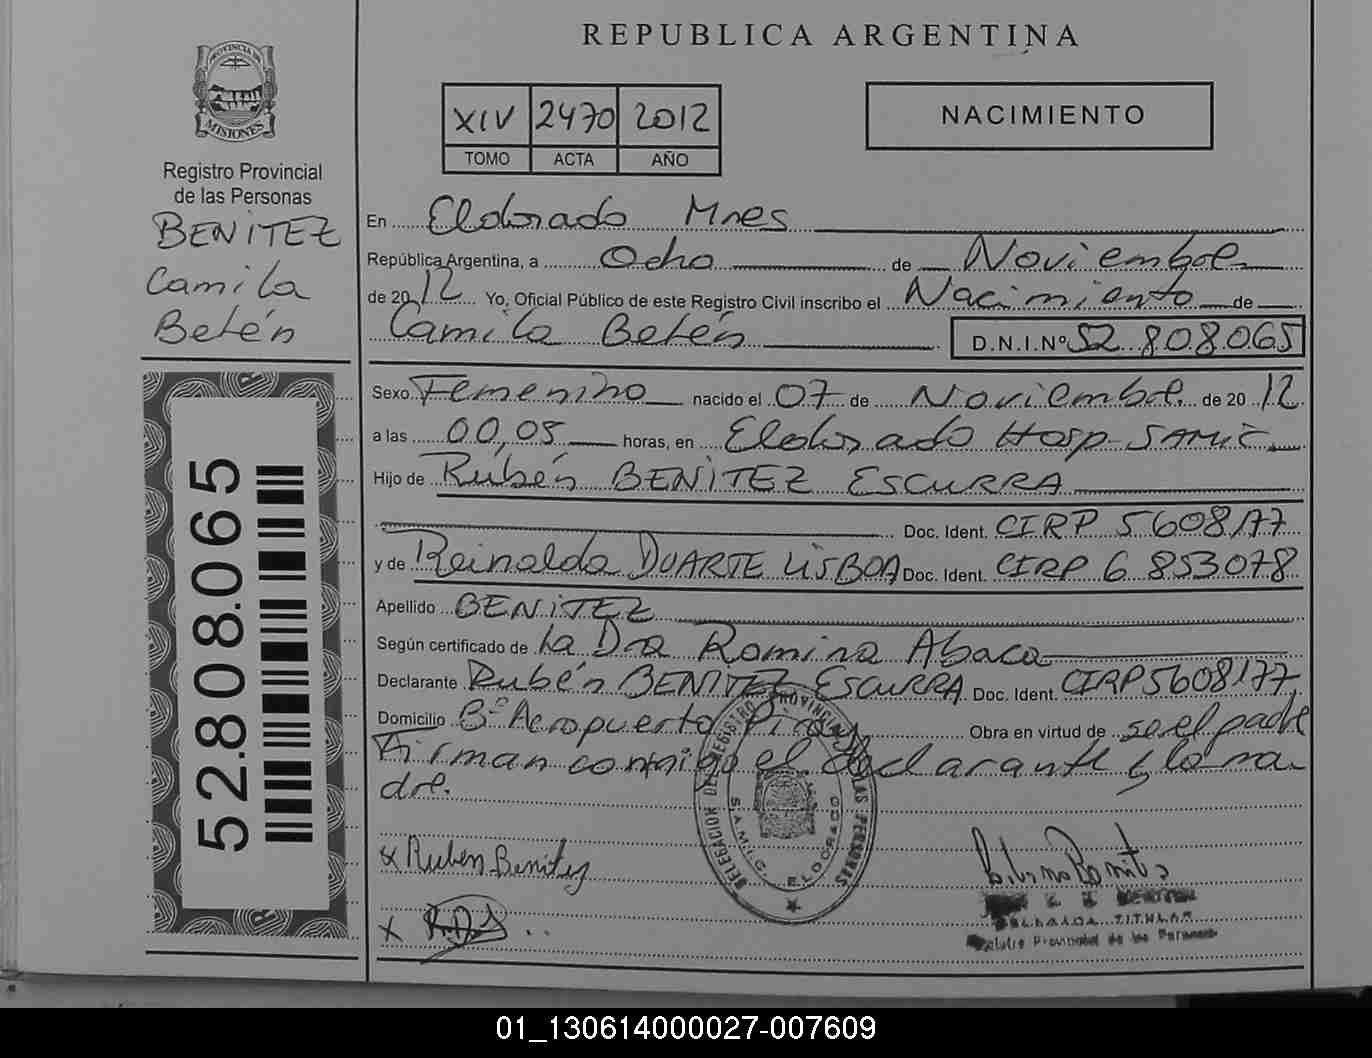 REPUBLICA ARGENTINA
PROVINCIA DE
MISIONES
Registro Provincial
de las Personas
BENITEZ
Camila
Belén
52.808.065
XIV 2470 2012
TOMO ACTA AÑO
NACIMIENTO
En Eldorado Mnes
República Argentina, a Ocho de Noviembre
de 2012 Yo, Oficial Público de este Registro Civil inscribo el Nacimiento de
Camila Belén D.N.I.Nº 52.808.065
Sexo Femenino nacido el 07 de Noviembre de 2012
a las 00,05 horas, en Eldorado Hosp. SAMIC
Hijo de Rubén BENITEZ ESCURRA
Doc. Ident. CIRP 5608177
y de Reinalda DUARTE LISBOA Doc. Ident. CIRP 6 853078
Apellido BENITEZ
Según certificado de La Dra Romina Abaca
Declarante Rubén BENITEZ ESCURRA Doc. Ident. CIRP5608177
Domicilio Bº Aeropuerto Piray Obra en virtud de se el padre
Firman conmigo el declarante y la ma-
dre.
x Ruben Benitez
x R.D.L
DELEGACION DE REGISTRO PROVINCIAL DE LAS PERSONAS
S.A.M.I.C. ELDORADO
DELEGADA TITULAR
Registro Provincial de las Personas
01_130614000027-007609